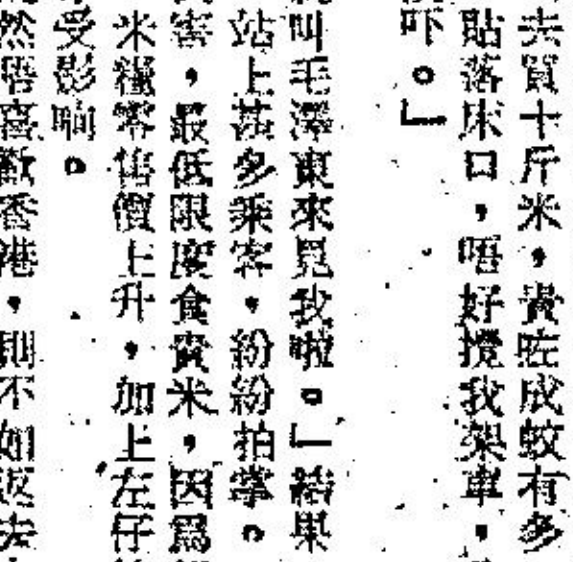 去買十斤米，貴咗成蚊有多
貼落床口，唔好攪我架車，
吓。」
叫毛澤東來見我啦。」結果
站上甚多乘客，紛紛拍掌。
害，最低限度食貴米，因爲
米糧零售價上升，加上左仔
受影响。
然唔喜歡香港，則不如返去